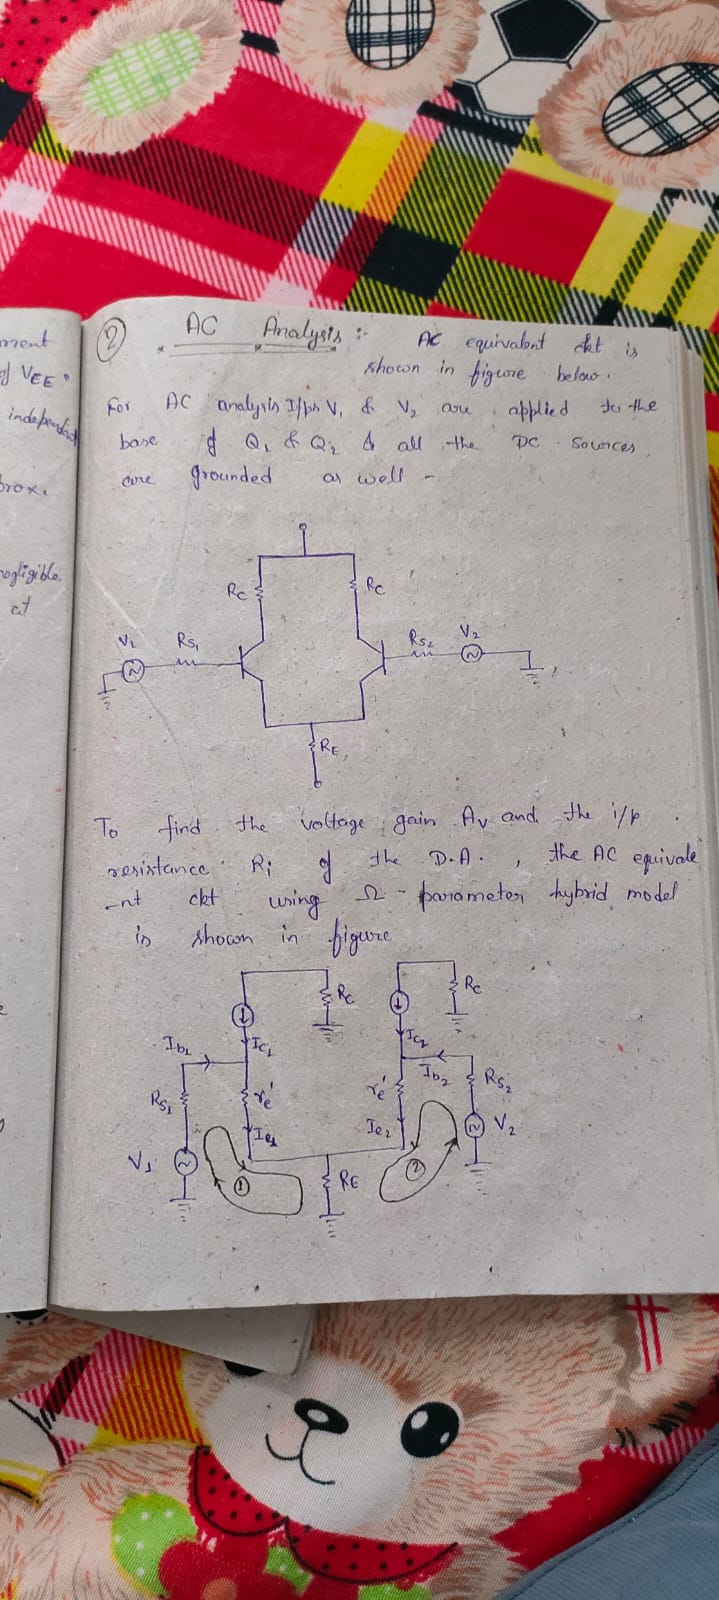 ment
of VEE.
independent
rox.
negligible
at
② AC Analysis :- AC equivalent ckt is
shown in figure below.
For AC analysis I/ps V₁ & V₂ are applied to the
base of Q₁ & Q₂ & all the DC sources
are grounded as well -
RC RC
V₁ RS₁ RS₂ V₂
RE
To find the voltage gain Av and the i/p
resistance Ri of the D.A., the AC equivale
-nt ckt using Ω - parameter hybrid model
is shown in figure
RC RC
Ib₁ IC₁ IC₂ Ib₂
RS₁ re' re' RS₂
Ie₁ Ie₂
V₁ V₂
① RE ②